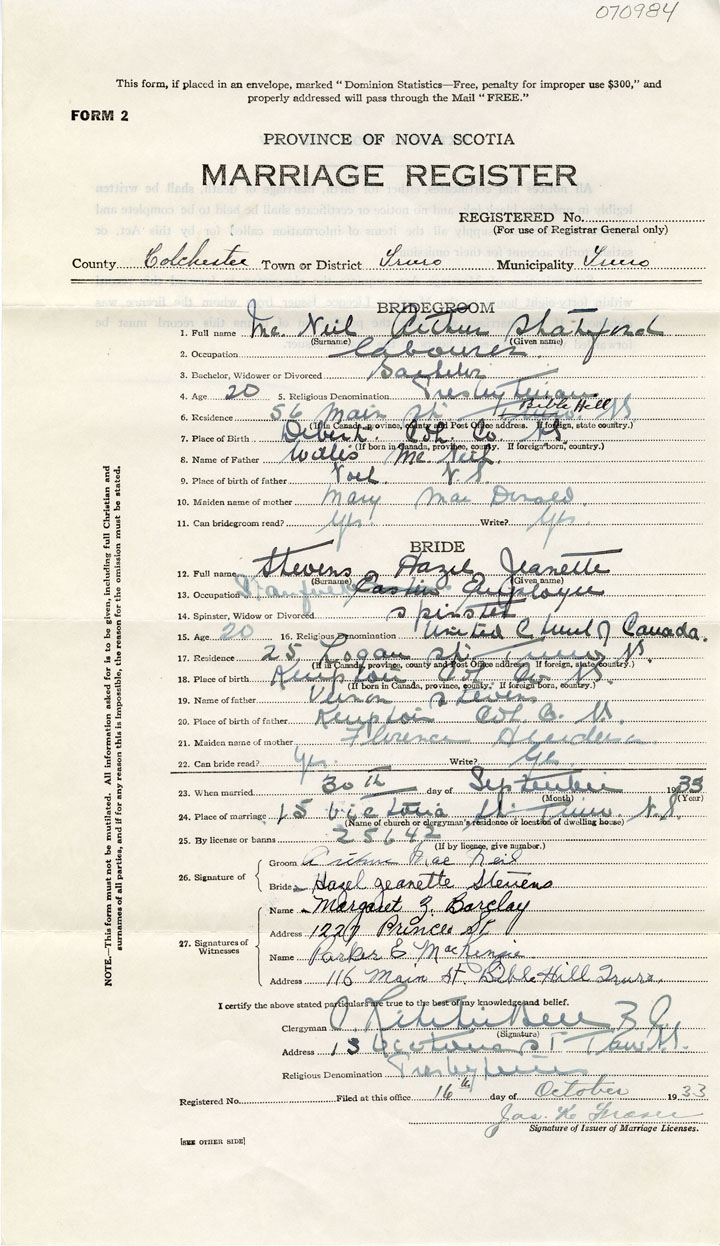 070984
This form, if placed in an envelope, marked "Dominion Statistics—Free, penalty for improper use $300," and
properly addressed will pass through the Mail "FREE."
FORM 2
PROVINCE OF NOVA SCOTIA
MARRIAGE REGISTER
REGISTERED No.
(For use of Registrar General only)
County Colchester Town or District Truro Municipality Truro
BRIDEGROOM
1. Full name Mc Neil Arthur Shatford
(Surname) (Given name)
2. Occupation labourer
3. Bachelor, Widower or Divorced Bachelor
4. Age 20 5. Religious Denomination Presbyterian
6. Residence 56 Main St. Bible Hill NS
(If in Canada, province, county and Post Office address. If foreign, state country.)
7. Place of Birth Debert Col. Co. NS
(If born in Canada, province, county. If foreign born, country.)
8. Name of Father Mc Neil
9. Place of birth of father Noel N.S.
10. Maiden name of mother Mary Mac Donald
11. Can bridegroom read? Yes Write? Yes
BRIDE
12. Full name Stevens Hazel Jeanette
(Surname) (Given name)
13. Occupation Stanfield Employee
14. Spinster, Widow or Divorced spinster
15. Age 20 16. Religious Denomination United Church of Canada.
17. Residence 25 Logan St. Truro N.
(If in Canada, province, county and Post Office address. If foreign, state country.)
18. Place of birth Kempton Col. Co. N.
(If born in Canada, province, county. If foreign born, country.)
19. Name of father Vernon Stevens
20. Place of birth of father Kempton Col. N.
21. Maiden name of mother Florence Henderson
22. Can bride read? Yes. Write? Yes
23. When married 30th day of September 1933
(Month) (Year)
24. Place of marriage 15 Victoria St. Truro. N.S.
(Name of church or clergyman's residence or location of dwelling house)
25. By license or banns 25642
(If by license, give number.)
26. Signature of
Groom Arthur Mac Neil
Bride Hazel Jeanette Stevens
27. Signatures of Witnesses
Name Margaret Z. Barclay
Address Princes St
Name Parker E MacKenzie
Address 116 Main St. Bible Hill Truro.
I certify the above stated particulars are true to the best of my knowledge and belief.
Clergyman
(Signature)
Address Victoria St Truro N.S.
Religious Denomination Presbyterian
Registered No. Filed at this office 16th day of October 1933
Jas. K. Fraser
Signature of Issuer of Marriage Licenses.
[SEE OTHER SIDE]
NOTE.—This form must not be mutilated. All information asked for is to be given, including full Christian and
surnames of all parties, and if for any reason this is impossible, the reason for the omission must be stated.